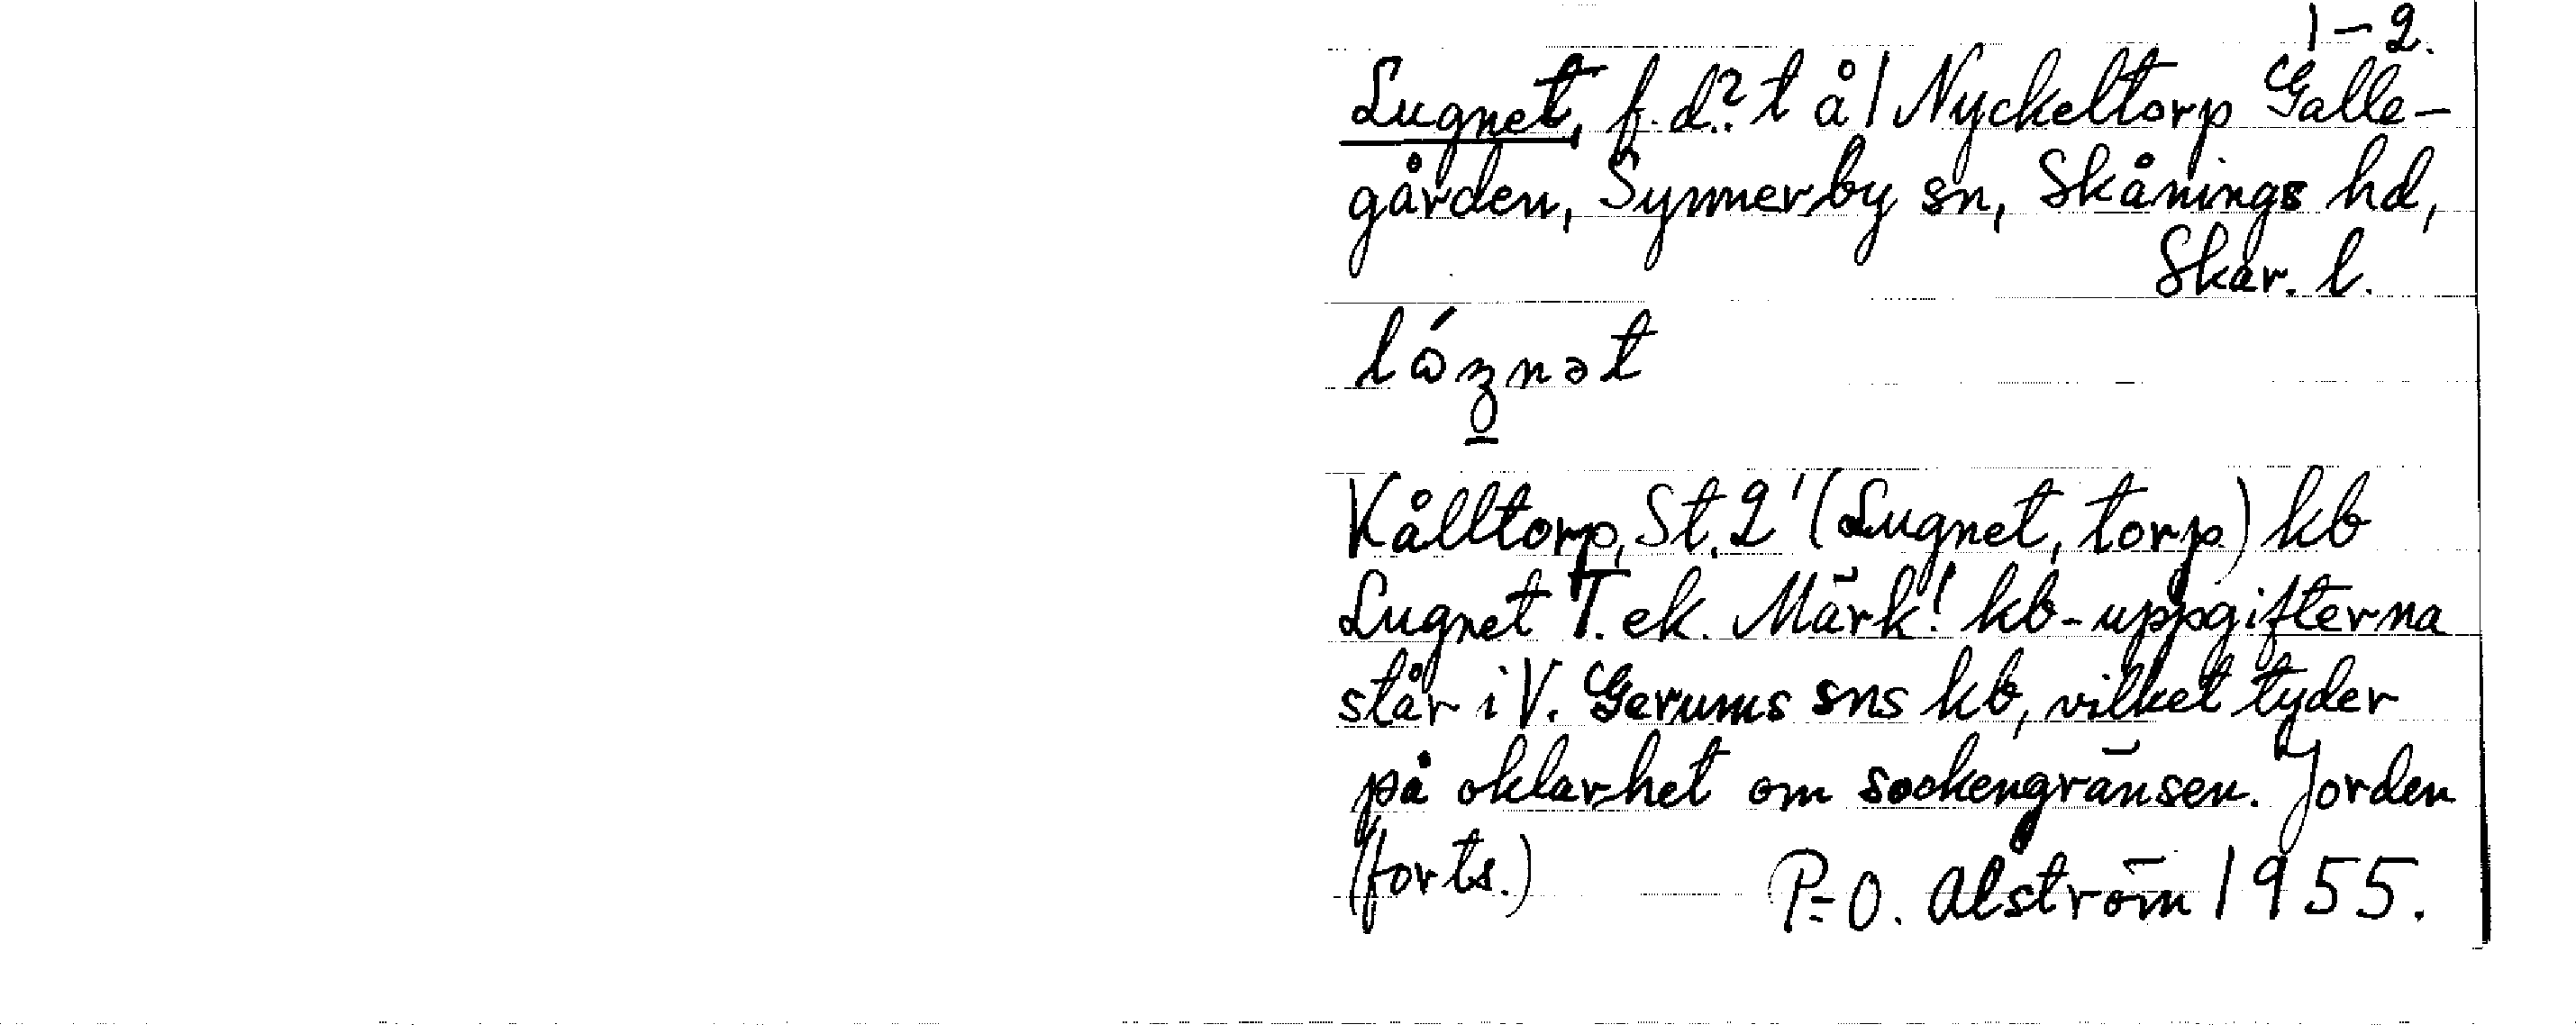 1-2.
Lugnet, f.d.? t å 1 Nyckeltorp Galle-
gården, Synnerby sn, Skånings hd,
Skar. l.
Kålltorp, St. 2' (Lugnet, torp.) kb
Lugnet T. ek. Märk! kb-uppgifterna
står i V. Gerums sns kb, vilket tyder
på oklarhet om sockengränsen. Jorden
(forts.) P-O. Alström 1955.